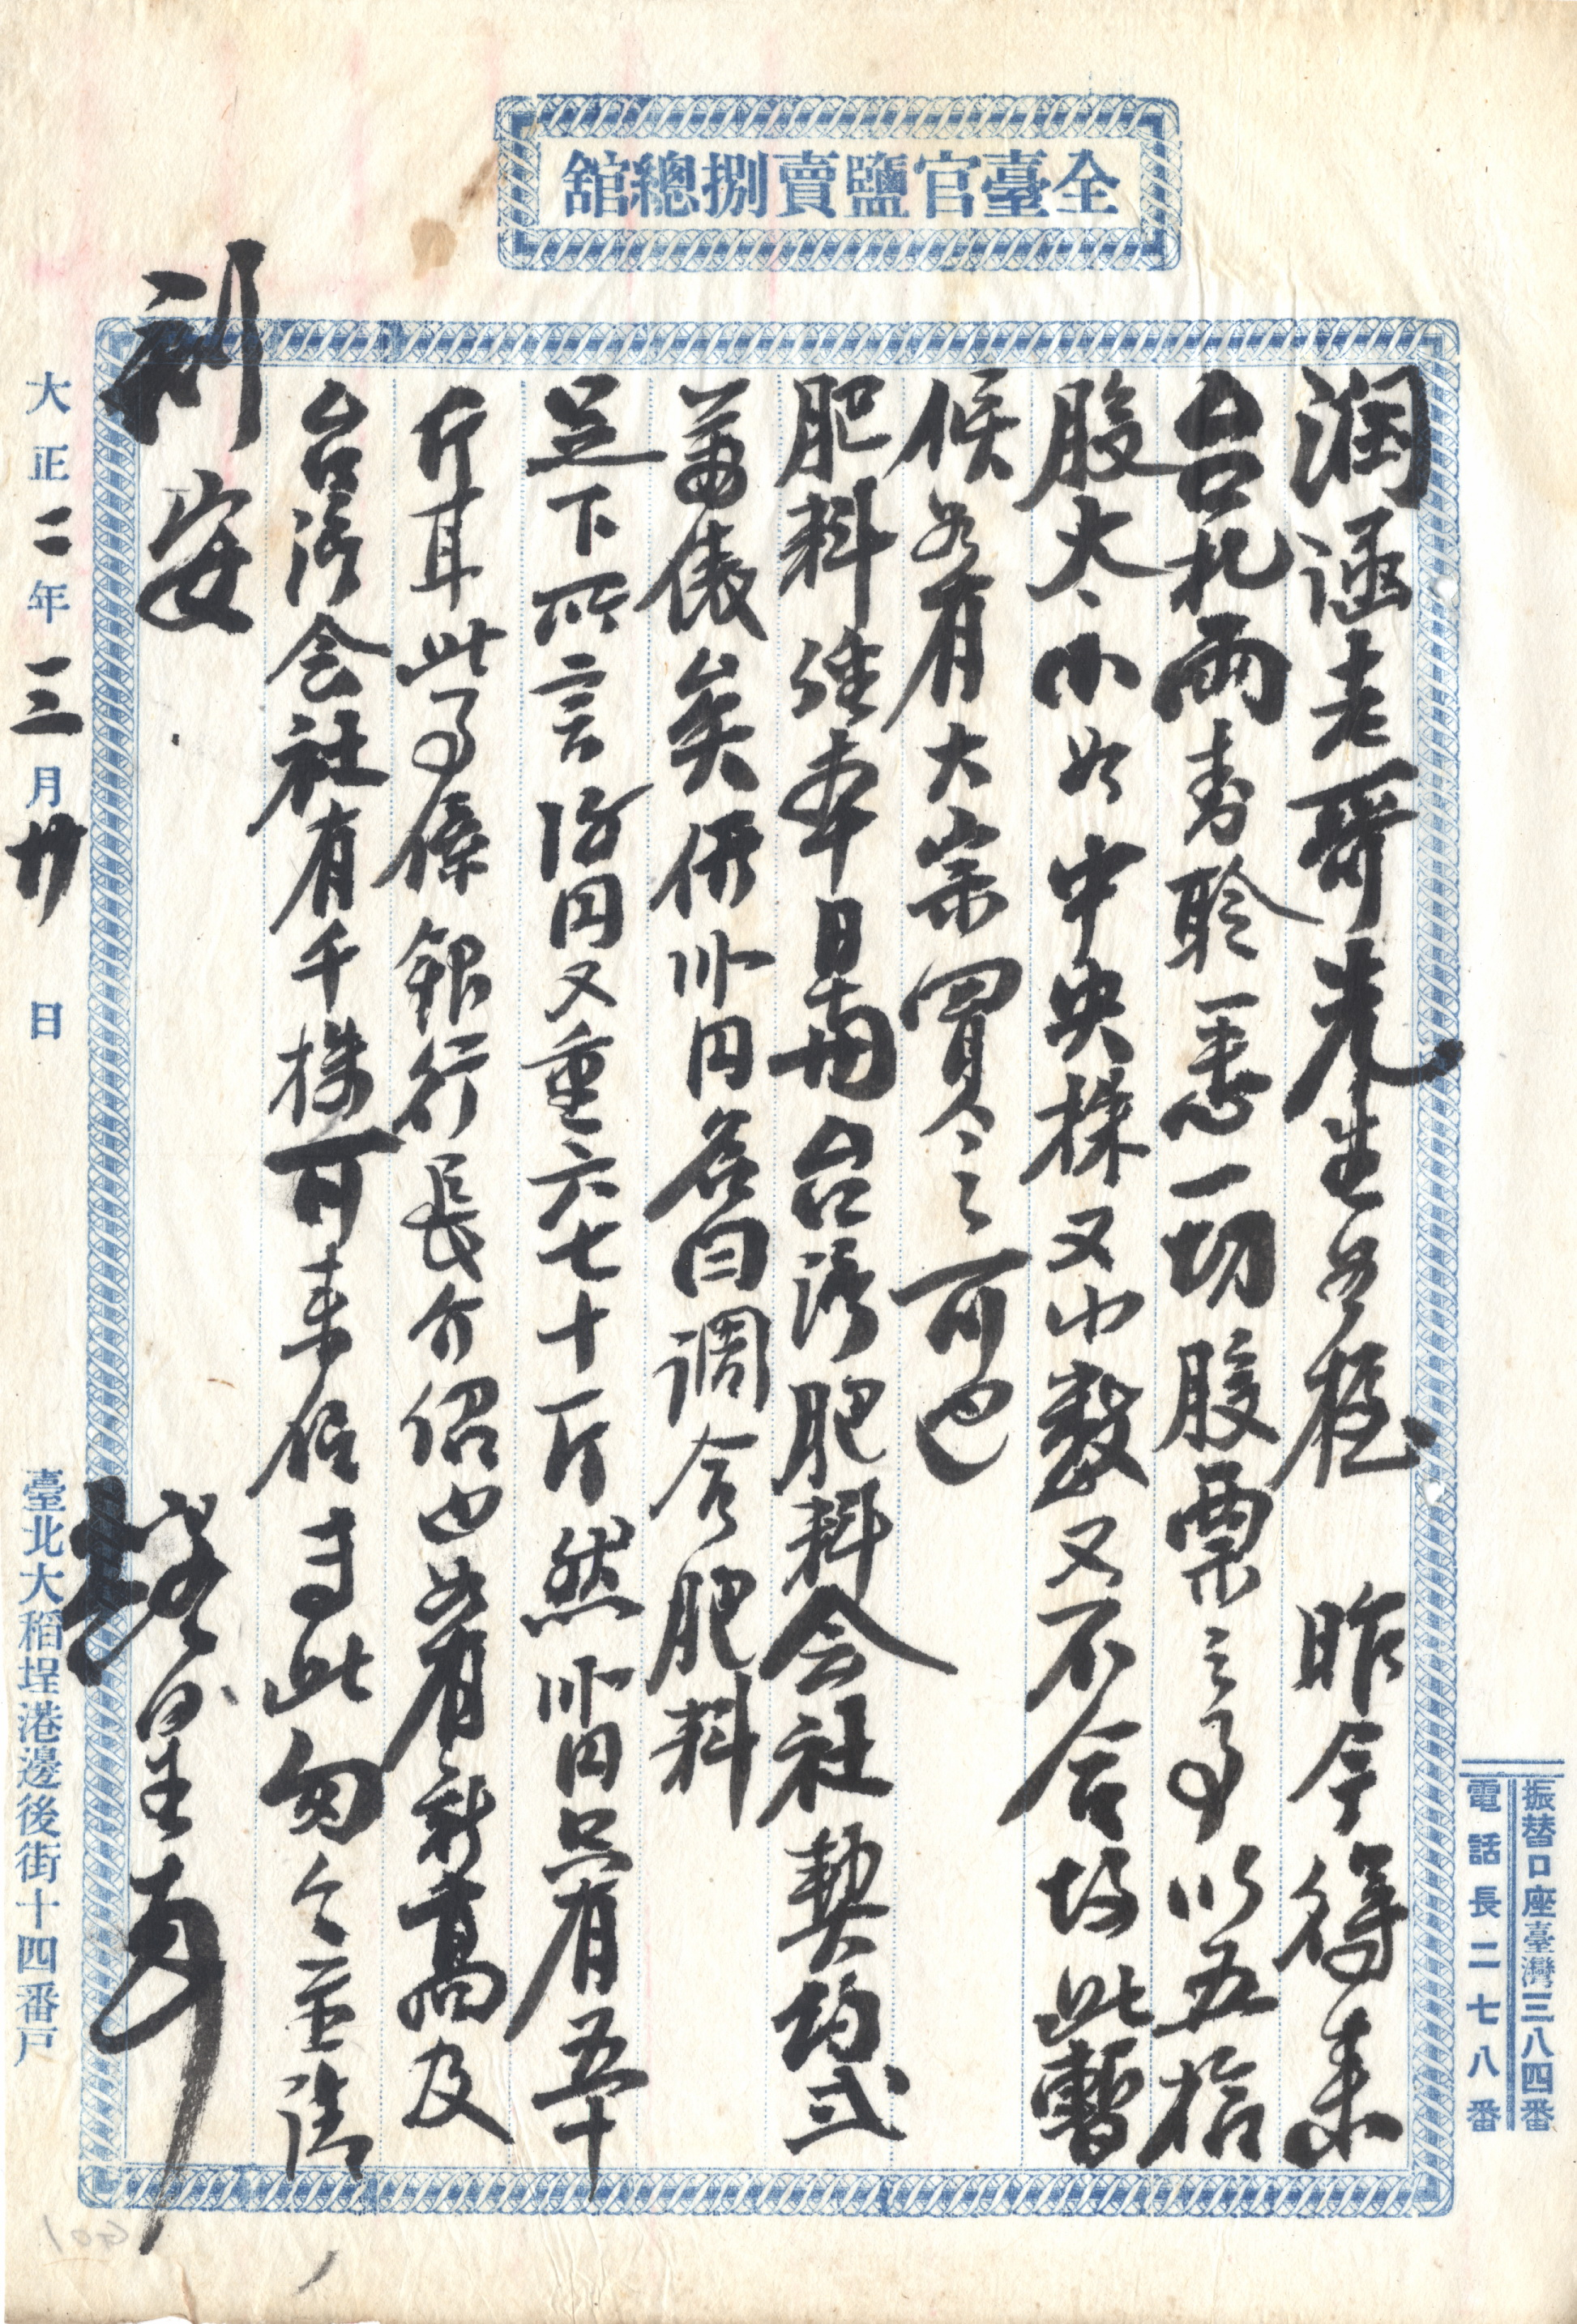 全臺官鹽賣捌總舘
振替口座臺灣三八四番
電話長二七八番
潤涵老哥先生如握 昨今得來
台札兩封聆悉一切股票之事以五拾
股太小如中央株又小數又不合故此暫
候如有大宗買之可也
肥料經本日與台湾肥料会社契約弍
萬俵矣 円名曰調合肥料
足下所言 円又重六七十斤然 円只有五十
斤耳此事係銀行長介紹也如有新高及
台湾会社有千株可来信专此匆々並請
利安
大正二年三月廿 日
臺北大稻埕港邊後街十四番戶